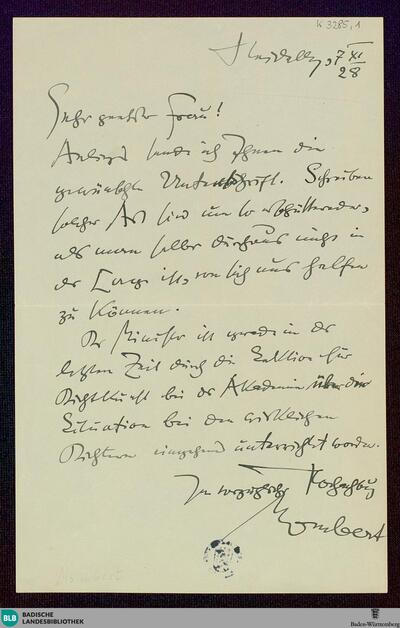 K 3285, 1
Heidelbg, 7 XI
28
Sehr geehrte Frau!
Anliegd sende ich Ihnen die
gewünschte Unterschrift. Schreiben
solcher Art sind um so erschütternder,
als man selber durchaus nicht in
der Lage ist, von sich aus helfen
zu können.
Der Minister ist gerade in der
letzten Zeit durch die Sektion für
Dichtkunst bei der Akademie über die
Situation bei den wirklichen
Dichtern eingehend unterrichtet worden.
In vorzüglicher Hochachtung
Mombert
Mombert
BLB BADISCHE
LANDESBIBLIOTHEK
Baden-Württemberg